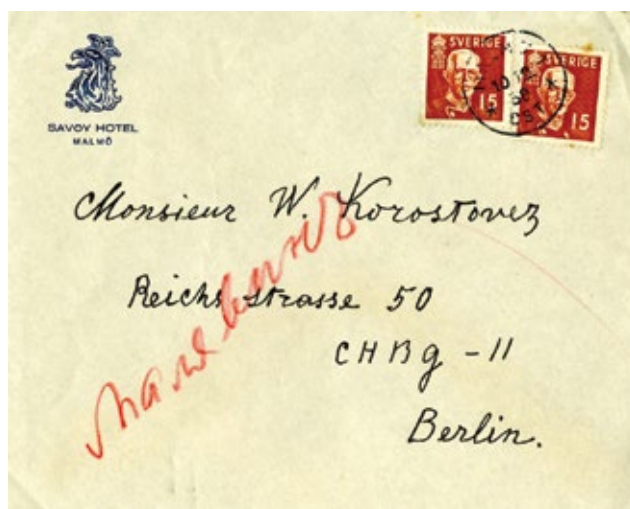 SAVOY HOTEL
MALMÖ
SVERIGE
15
SVERIGE
15
Monsieur W. Korostovez
Reichsstrasse 50
CHBg - 11
Berlin.